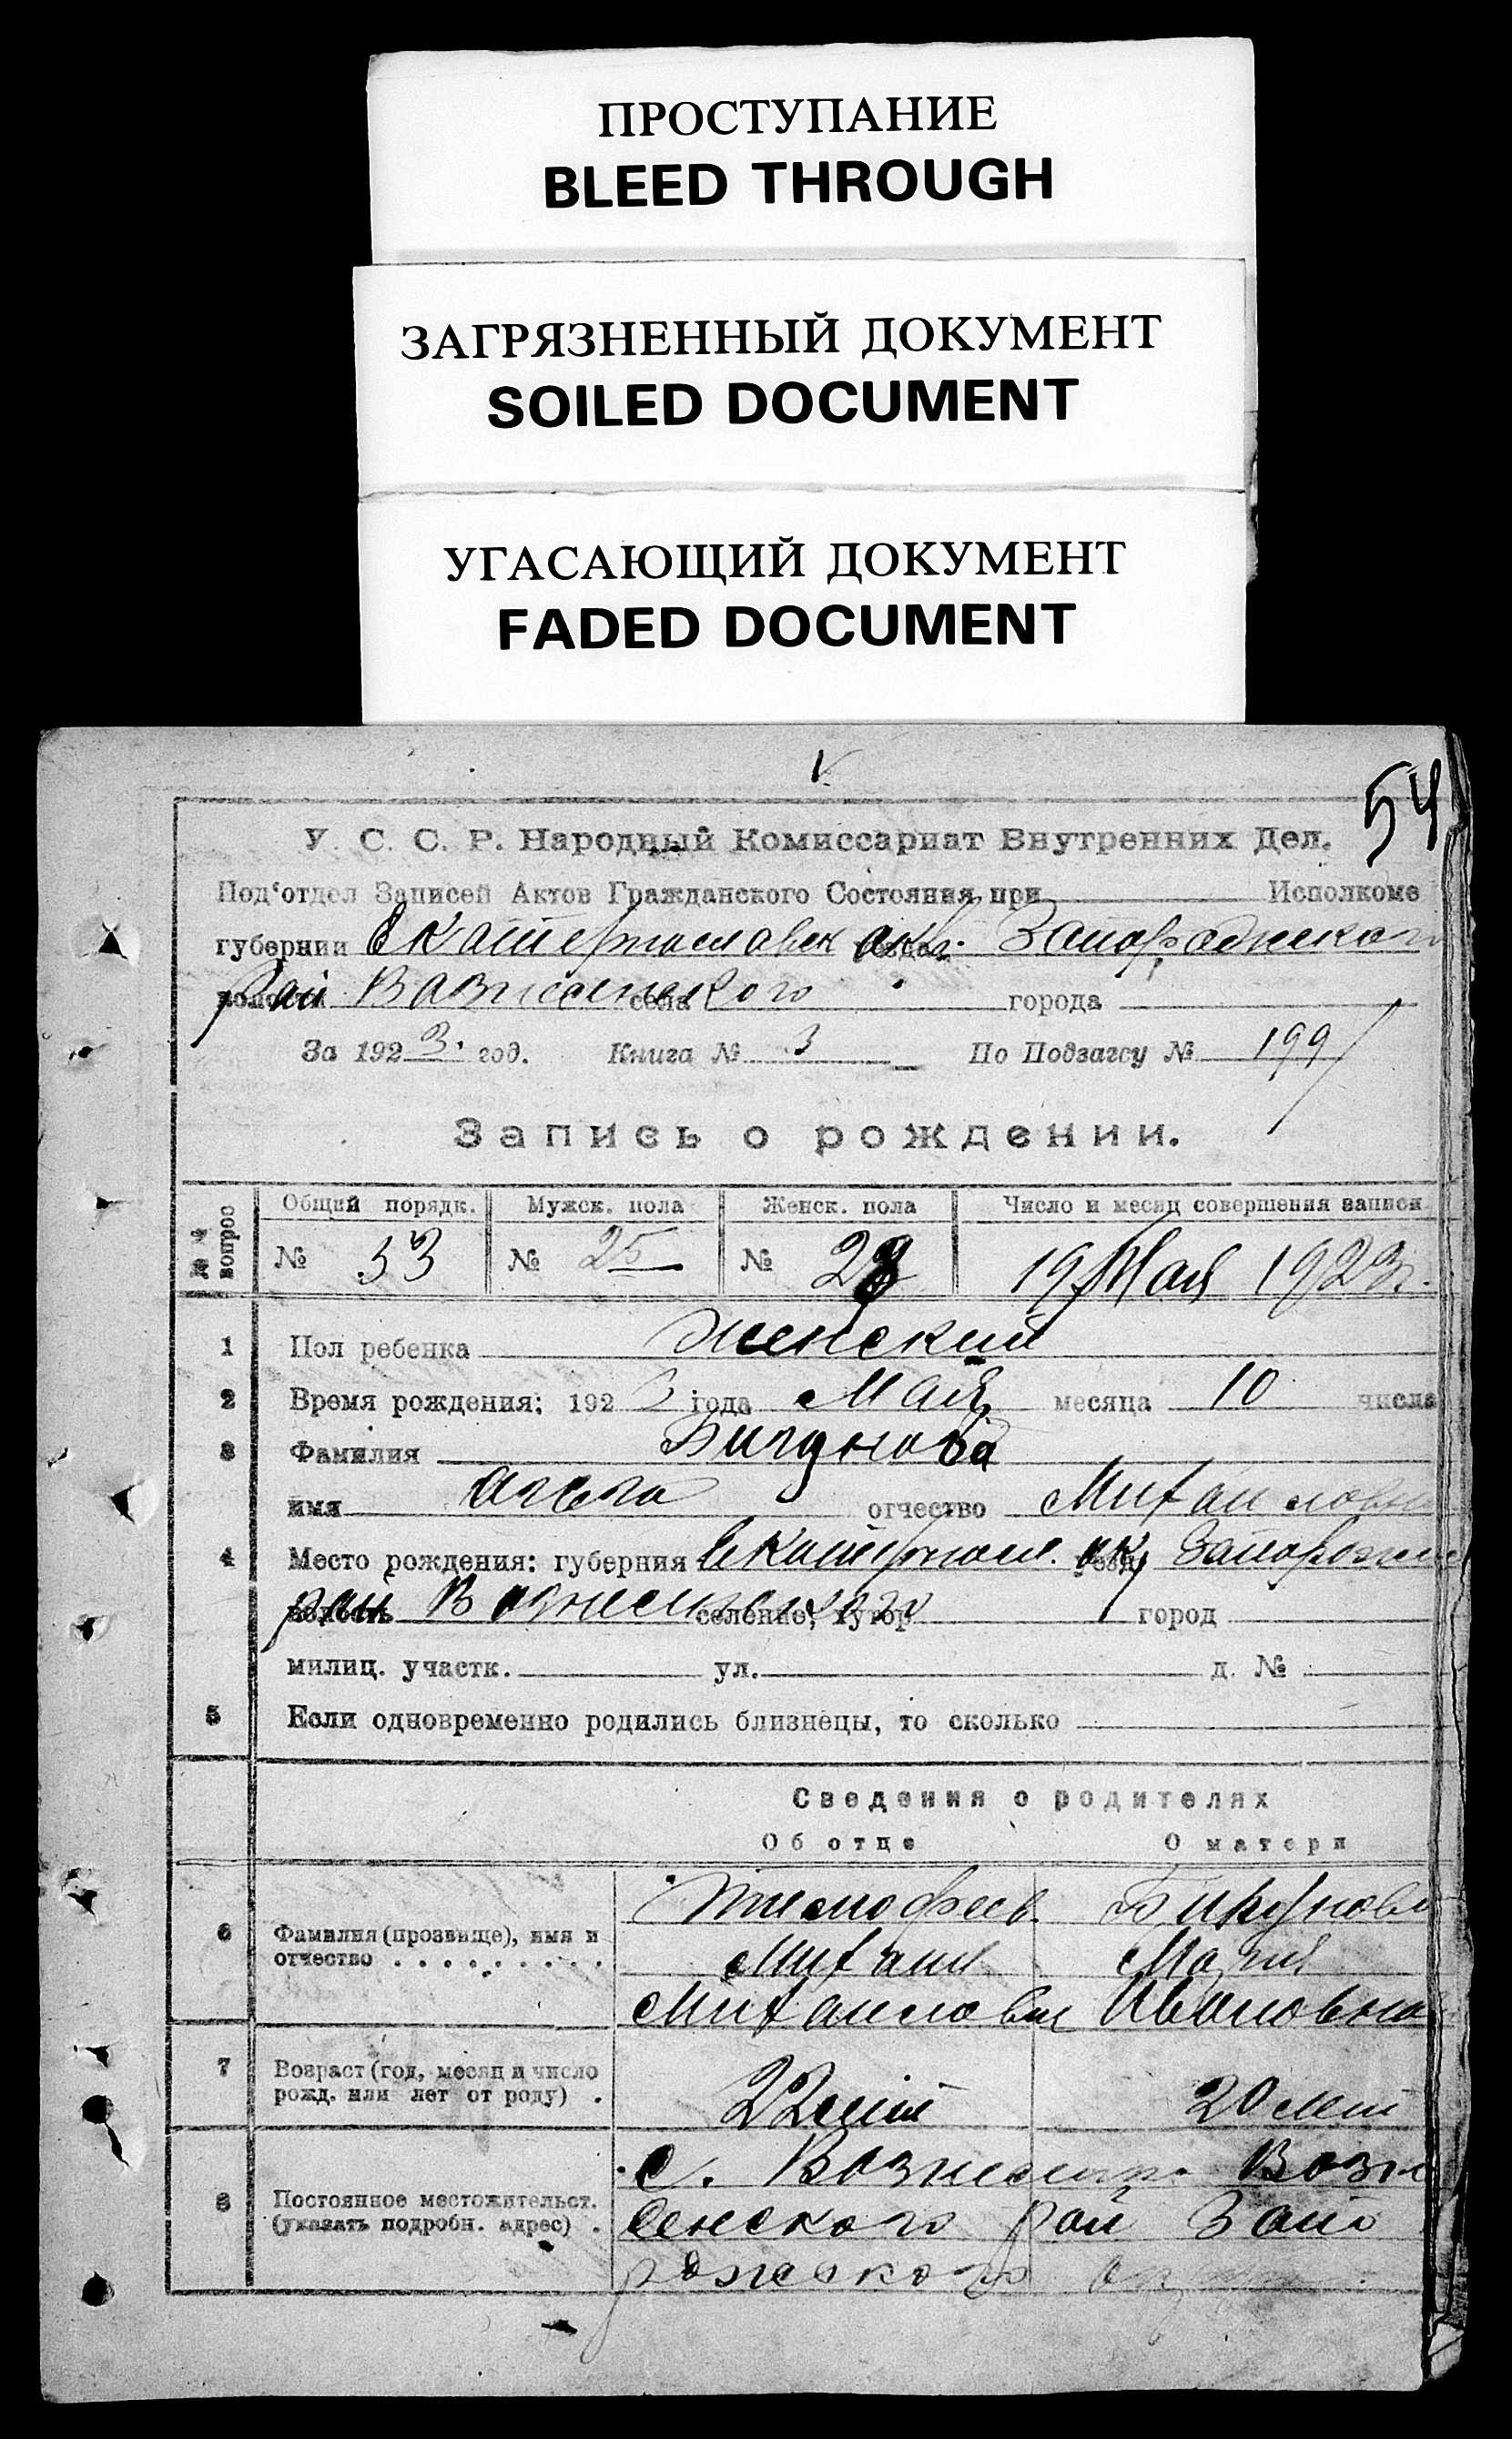 ПРОСТУПАНИЕ
BLEED THROUGH
ЗАГРЯЗНЕННЫЙ ДОКУМЕНТ
SOILED DOCUMENT
УГАСАЮЩИЙ ДОКУМЕНТ
FADED DOCUMENT
54
У. С. С. Р. Народный Комиссариат Внутренних Дел.
Под'отдел Записей Актов Гражданского Состояния при Исполкоме
губернии Екатеринославск окр. Запорожского
рай Вознесенского села города
За 1923. год. Книга № 3 По Подзагсу № 199
Запись о рождении.
№№ вопрос Общий порядк. Мужск. пола Женск. пола Число и месяц совершения записи
№ 53 № 25 № 28 19 Мая 1923 г.
1 Пол ребенка Женский
2 Время рождения: 1923 года Мая месяца 10 числа
3 Фамилия
имя отчество Михайловна
4 Место рождения: губерния Екатериносл. окр Запорожск
рай Вознесенского селение, хутор город
милиц. участк. ул. д. №
5 Если одновременно родились близнецы, то сколько
Сведения о родителях
Об отце О матери
6 Фамилия (прозвище), имя и отчество . . . . . . . . .
Тимофеев
Михаил Мария
Михаилович Ивановна
7 Возраст (год, месяц и число рожд. или лет от роду) .
22 лет 20 лет
8 Постоянное местожительст. (указать подробн. адрес) .
с. Вознесенск. Возне
сенского рай Запо
рожского